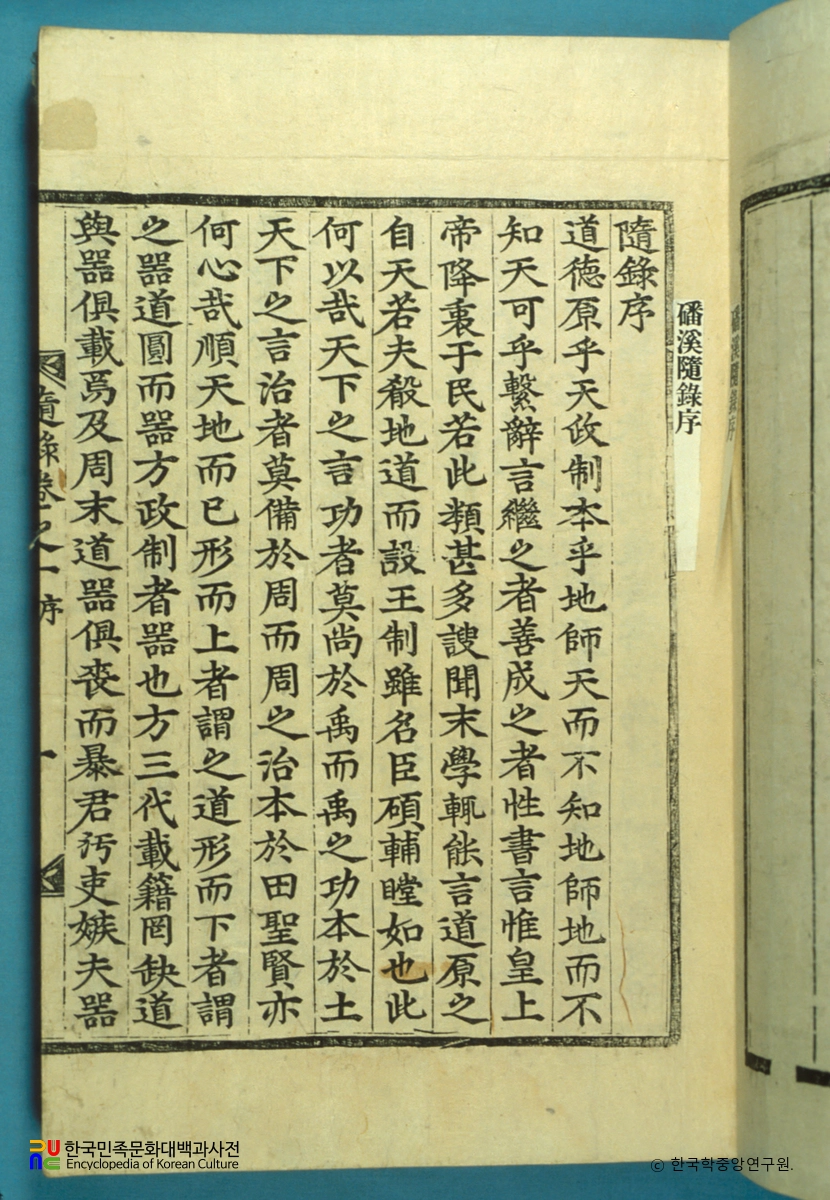 磻溪隨錄序
磻溪隨錄序
隨錄序
道德原乎天政制本乎地師天而不知地師地而不
知天可乎繫辭言繼之者善成之者性書言惟皇上
帝降衷于民若此類甚多謏聞末學輒能言道原之
自天若夫殺地道而設王制雖名臣碩輔瞠如也此
何以哉天下之言功者莫尚於禹而禹之功本於土
天下之言治者莫備於周而周之治本於田聖賢亦
何心哉順天地而已形而上者謂之道形而下者謂
之器道圓而器方政制者器也方三代載籍罔缺道
與器俱載焉及周末道器俱喪而暴君汚吏嫉夫器
隨錄卷之一 序 一
한국민족문화대백과사전
Encyclopedia of Korean Culture
© 한국학중앙연구원.